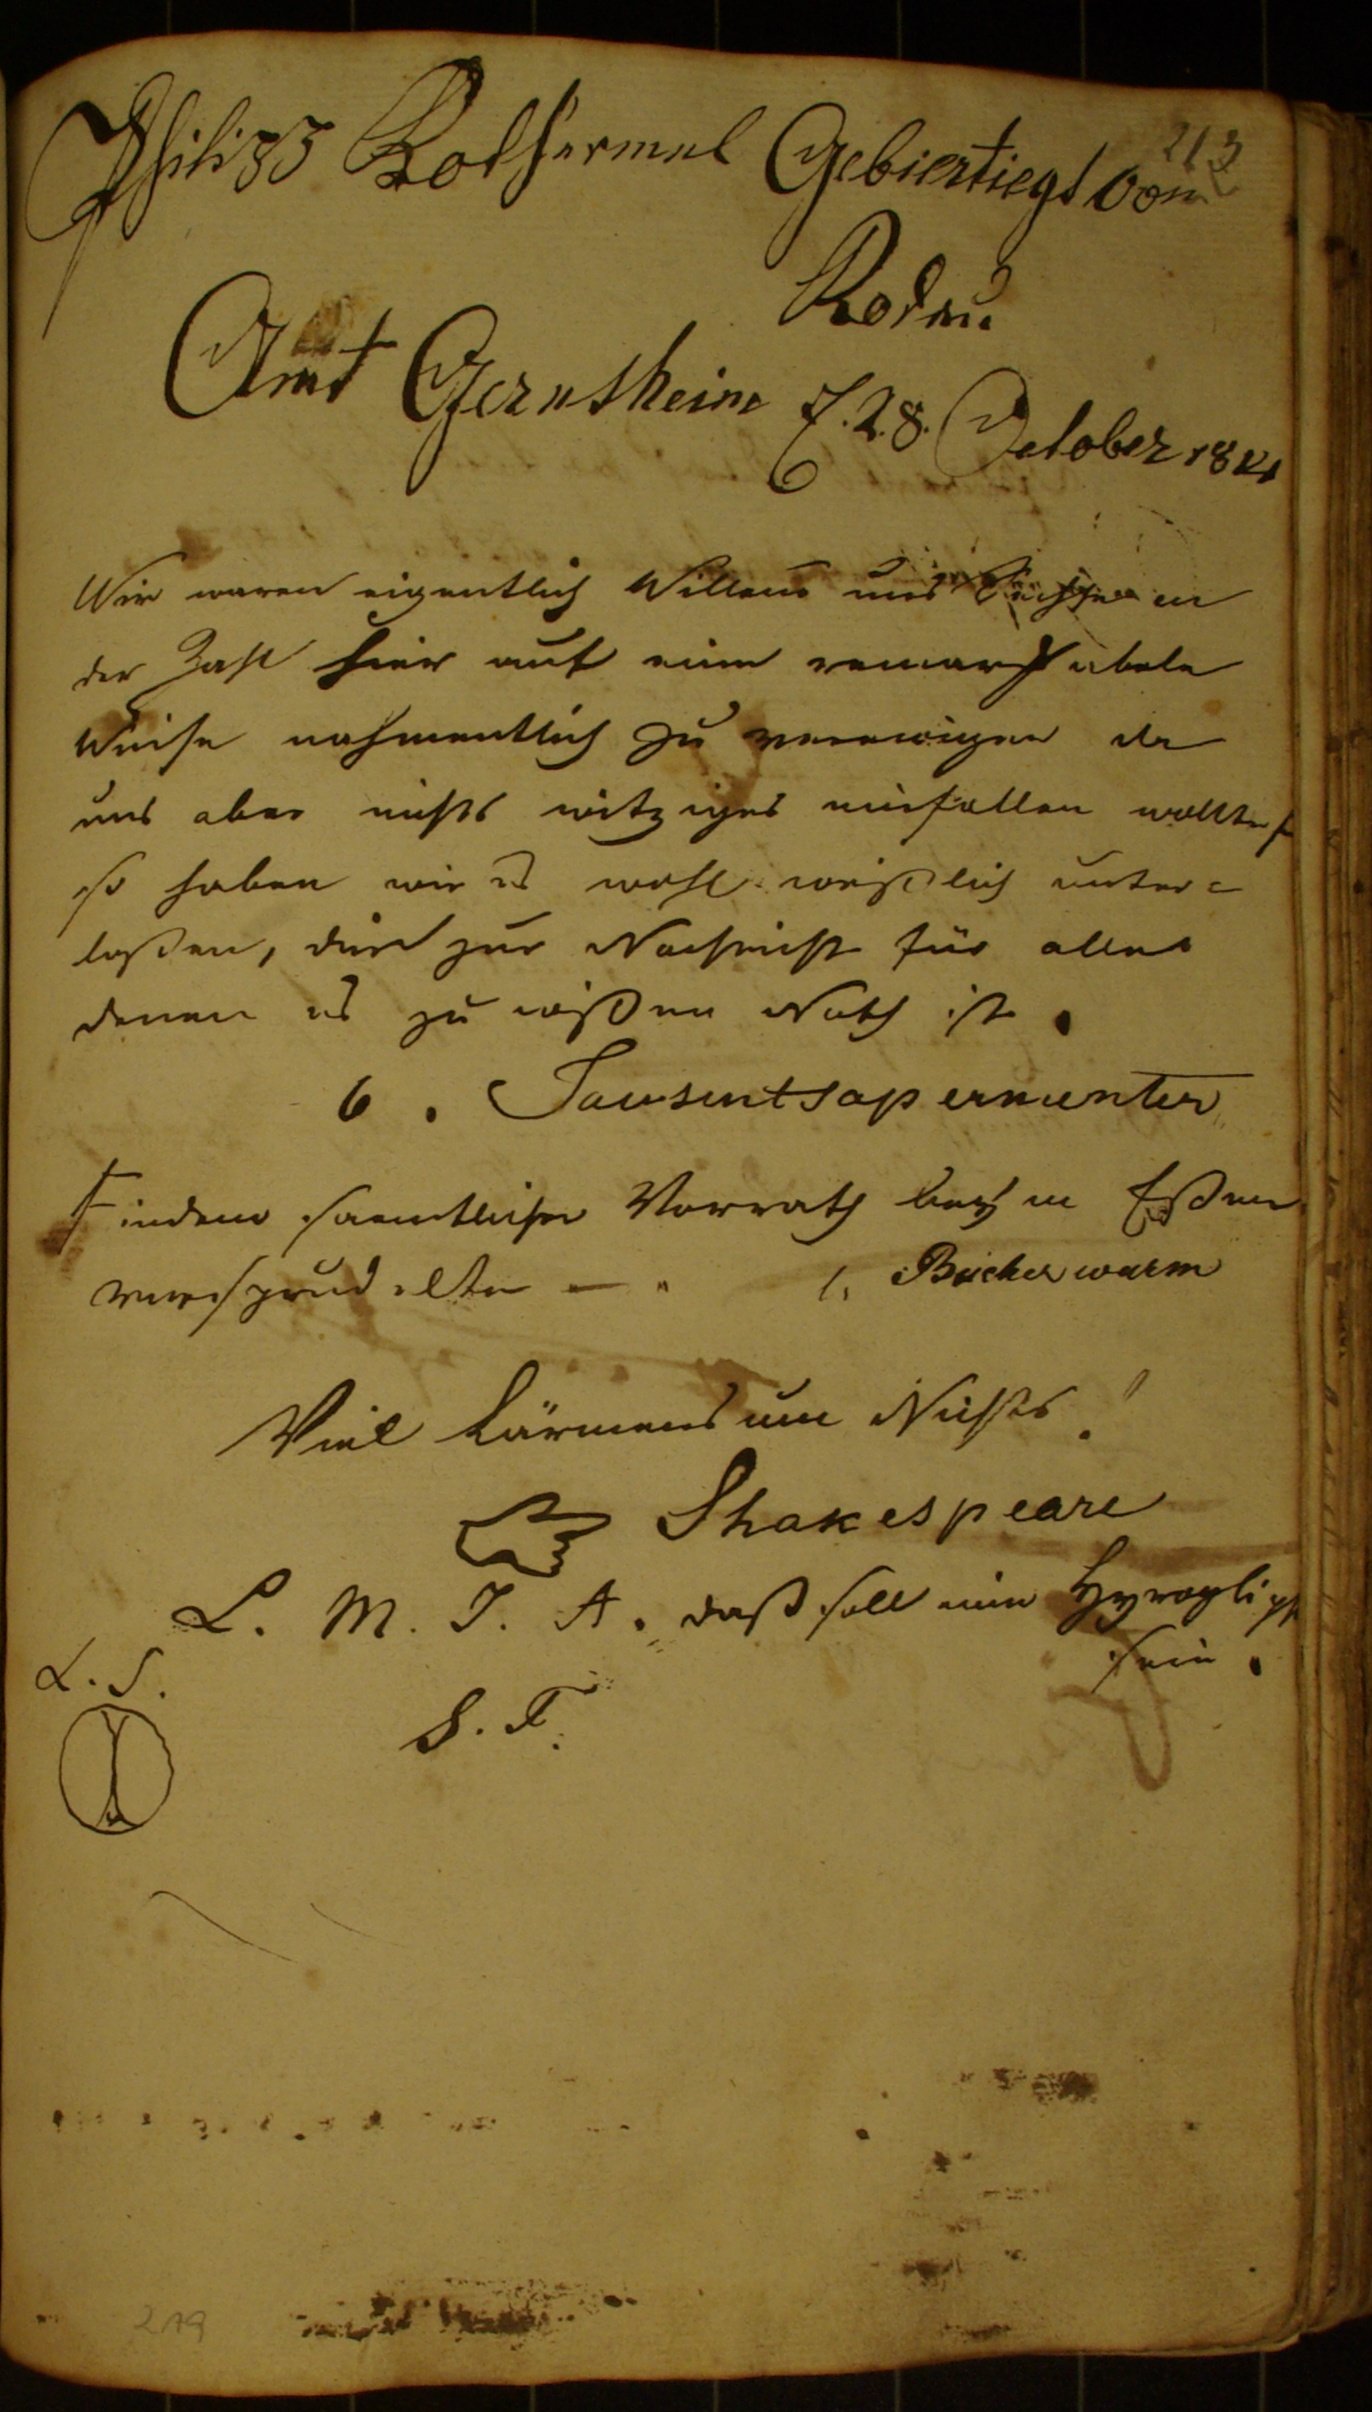 213
Philipp Rothermel Gebiertiegt von
Rodau
Amt Gernsheim d. 28. October 1821
Wir waren eigentlich Willens uns Sechse an
der Zahl hier auf eine remarkabele
Weise nahmentlich zu verewigen da
uns aber nichts witziges einfallen wollte
so haben wir es wohl weißlich unter=
laßen, dies zur Nachricht für alle
denen es zu wißen Noth ist.
6. Tausentsapermenter
indem saemtlicher Vorrath beym Eßen
versprudelte — 1. Bücherwurm
Viel Lärmens um Nichts!
Shakespeare
L. M. I. A. daß soll ein Hyroglip
sein.
L. S.
S. T.
219